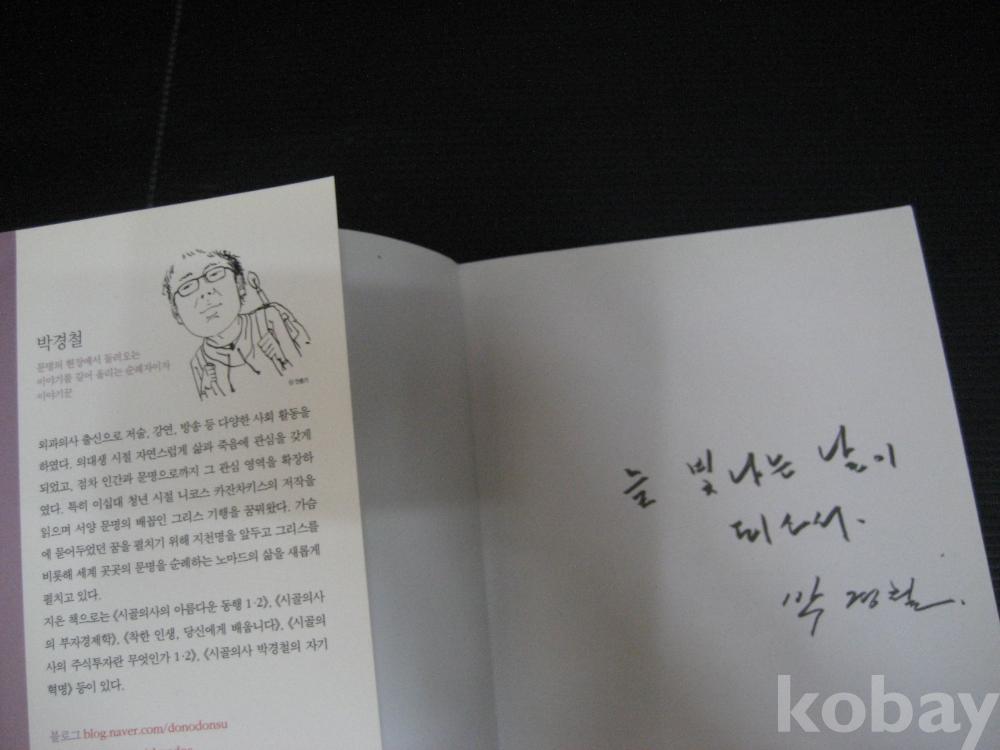 박경철
문명의 현장에서 들려오는
이야기를 길어 올리는 순례자이자
이야기꾼
외과의사 출신으로 저술, 강연, 방송 등 다양한 사회 활동을
하였다. 의대생 시절 자연스럽게 삶과 죽음에 관심을 갖게
되었고, 점차 인간과 문명으로까지 그 관심 영역을 확장하
였다. 특히 이십대 청년 시절 니코스 카잔차키스의 저작을
읽으며 서양 문명의 배꼽인 그리스 기행을 꿈꿔왔다. 가슴
에 묻어두었던 꿈을 펼치기 위해 지천명을 앞두고 그리스를
비롯해 세계 곳곳의 문명을 순례하는 노마드의 삶을 새롭게
펼치고 있다.
지은 책으로는 《시골의사의 아름다운 동행 1·2》, 《시골의사
의 부자경제학》, 《착한 인생, 당신에게 배웁니다》, 《시골의
사의 주식투자란 무엇인가 1·2》, 《시골의사 박경철의 자기
혁명》 등이 있다.
블로그 blog.naver.com/donodonsu
늘 빛나는 날이
되소서.
박경철.
kobay